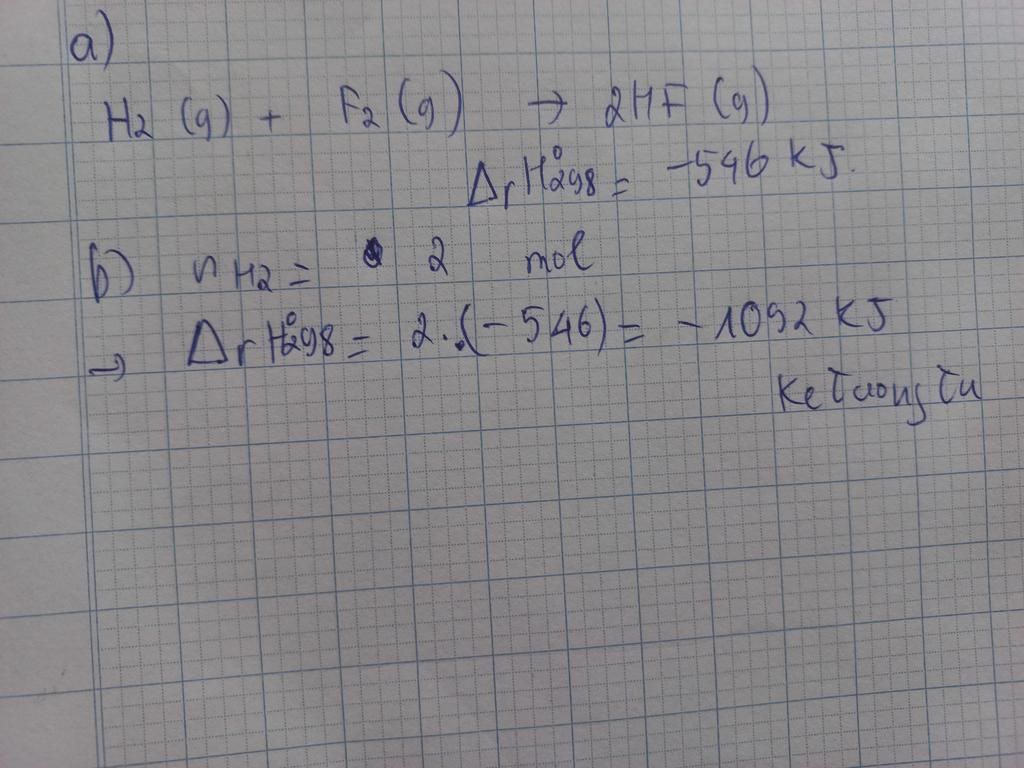 a)
H2 (g) + F2 (g) → 2HF (g)
ΔrH°298 = -546 KJ.
b) nH2 = 2 mol
→ ΔrH°298 = 2.(-546) = -1092 KJ